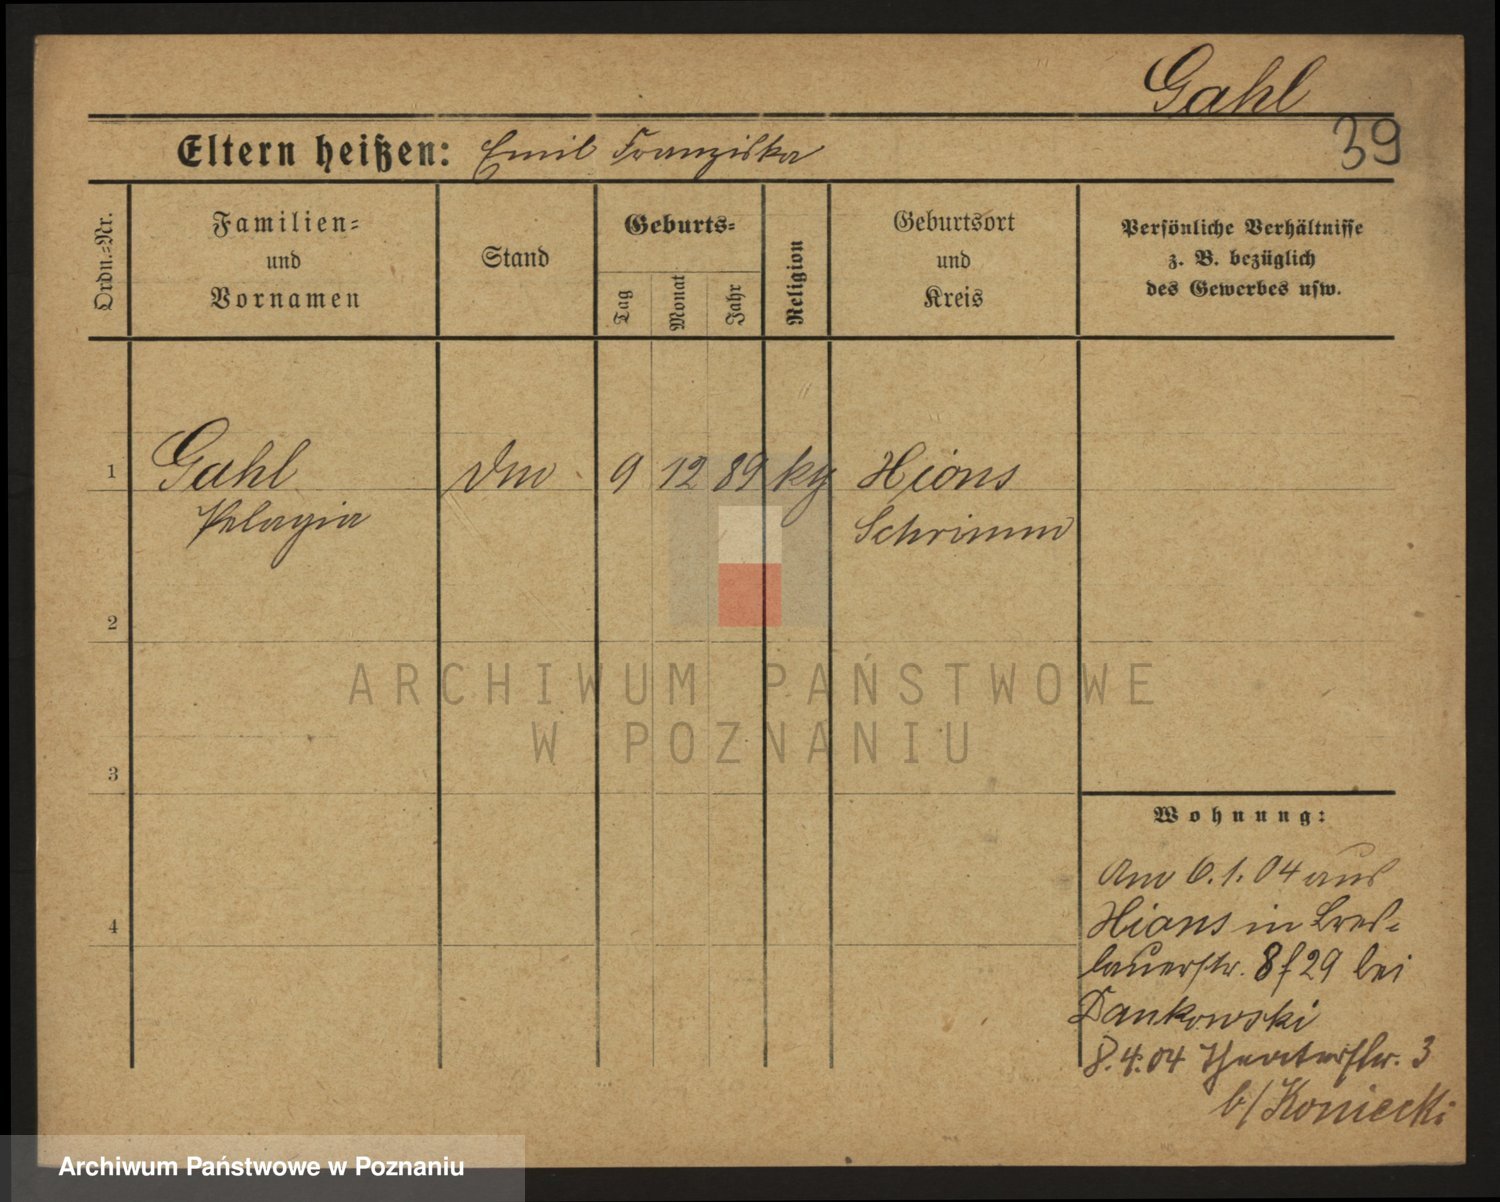 Gahl
39
Eltern heißen: Emil Franziska
Ordn.-Nr.
Familien-
und
Vornamen
Stand
Geburts-
Tag
Monat
Jahr
Religion
Geburtsort
und
Kreis
Persönliche Verhältnisse
z. B. bezüglich
des Gewerbes usw.
1 Gahl 9 12 89 Xions
Pelagia Schrimm
2
3
4
ARCHIWUM PAŃSTWOWE
W POZNANIU
Wohnung:
Am 6.1.04 aus
Xions in Bres-
lauerstr. 8 f 29 bei
Dankowski
8.4.04 Theaterstr. 3
b/ Koniecki
Archiwum Państwowe w Poznaniu